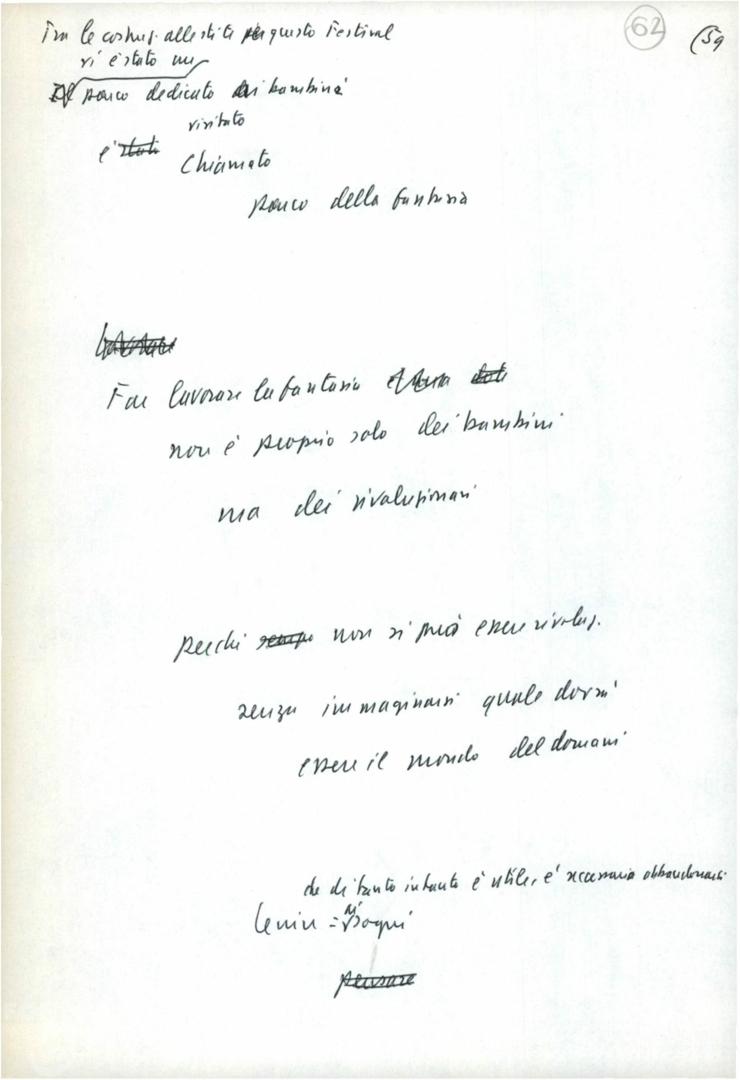 62
(59
Fra le costruz. allestite per questo Festival
vi è stato un
Il parco dedicato ai bambini
visitato
è stato
Chiamato
parco della fantasia
lavorare
Far lavorare la fantasia
non è proprio solo dei bambini
ma dei rivoluzionari
perché non si può essere rivoluz.
senza immaginarsi quale dovrà
essere il mondo del domani
che di tanto in tanto è utile, è necessario abbandonarsi
Lenin = ai sogni
pensare